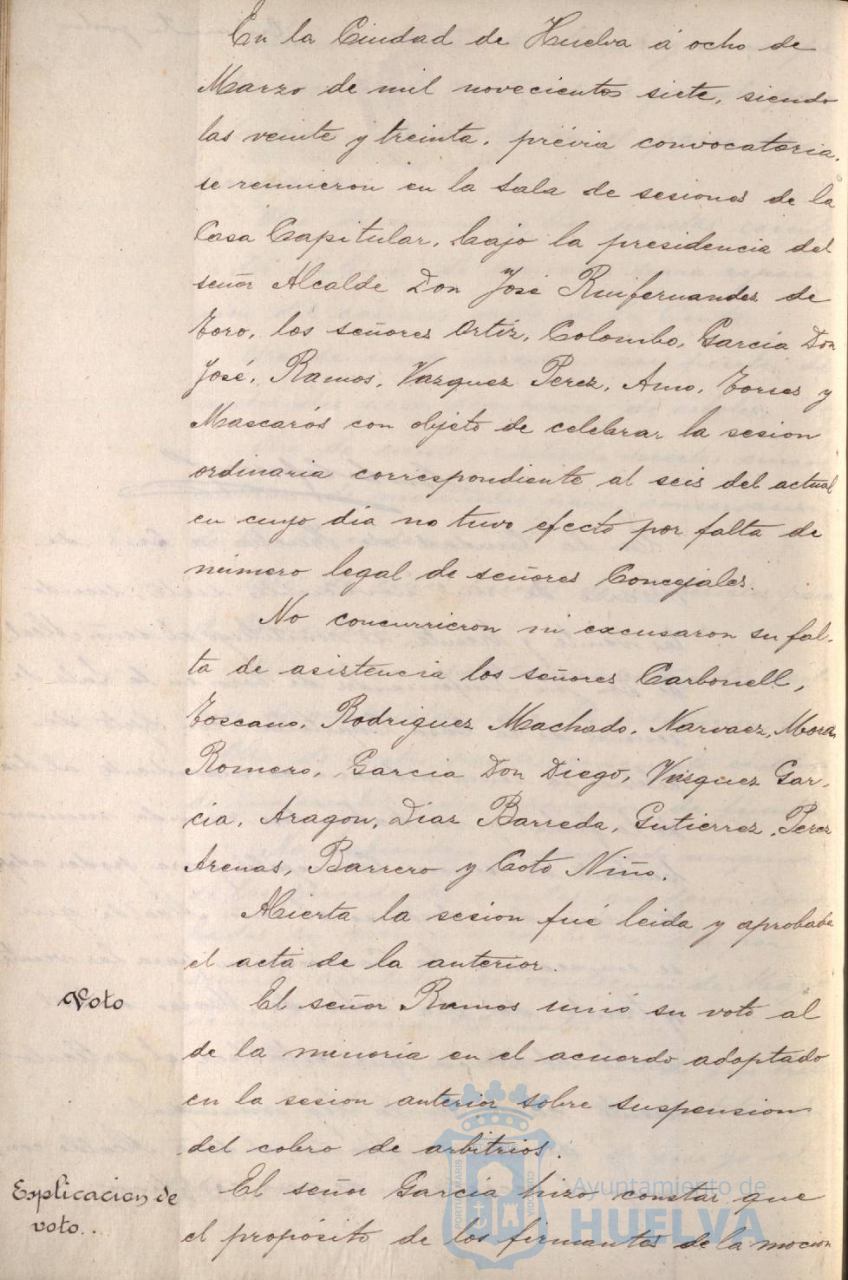 En la Ciudad de Huelva á ocho de
Marzo de mil novecientos siete, siendo
las veinte y treinta, prévia convocatoria,
se reunieron en la Sala de sesiones de la
Casa Capitular, bajo la presidencia del
señor Alcalde Don José Ruifernandez de
Toro, los señores Ortíz, Colombo, García Don
José, Ramos, Vazquez Perez, Amo, Torres y
Mascarós con objeto de celebrar la sesion
ordinaria correspondiente al seis del actual
en cuyo día no tuvo efecto por falta de
número legal de señores Concejales.
No concurrieron ni excusaron su fal-
ta de asistencia los señores Carbonell,
Toscano, Rodriguez Machado, Narvaez, Mora
Romero, Garcia Don Diego, Vasquez Gar-
cia, Aragon, Diaz Barreda, Gutierrez, Perez
Arenas, Barrero y Coto Niño.
Abierta la sesion fué leida y aprobada
el acta de la anterior.
Voto
El señor Ramos unió su voto al
de la minoria en el acuerdo adoptado
en la sesion anterior sobre suspension
del cobro de arbitrios.
Esplicacion de
voto..
El señor García hizo constar que
el propósito de los firmantes de la mocion
Ayuntamiento de
HUELVA